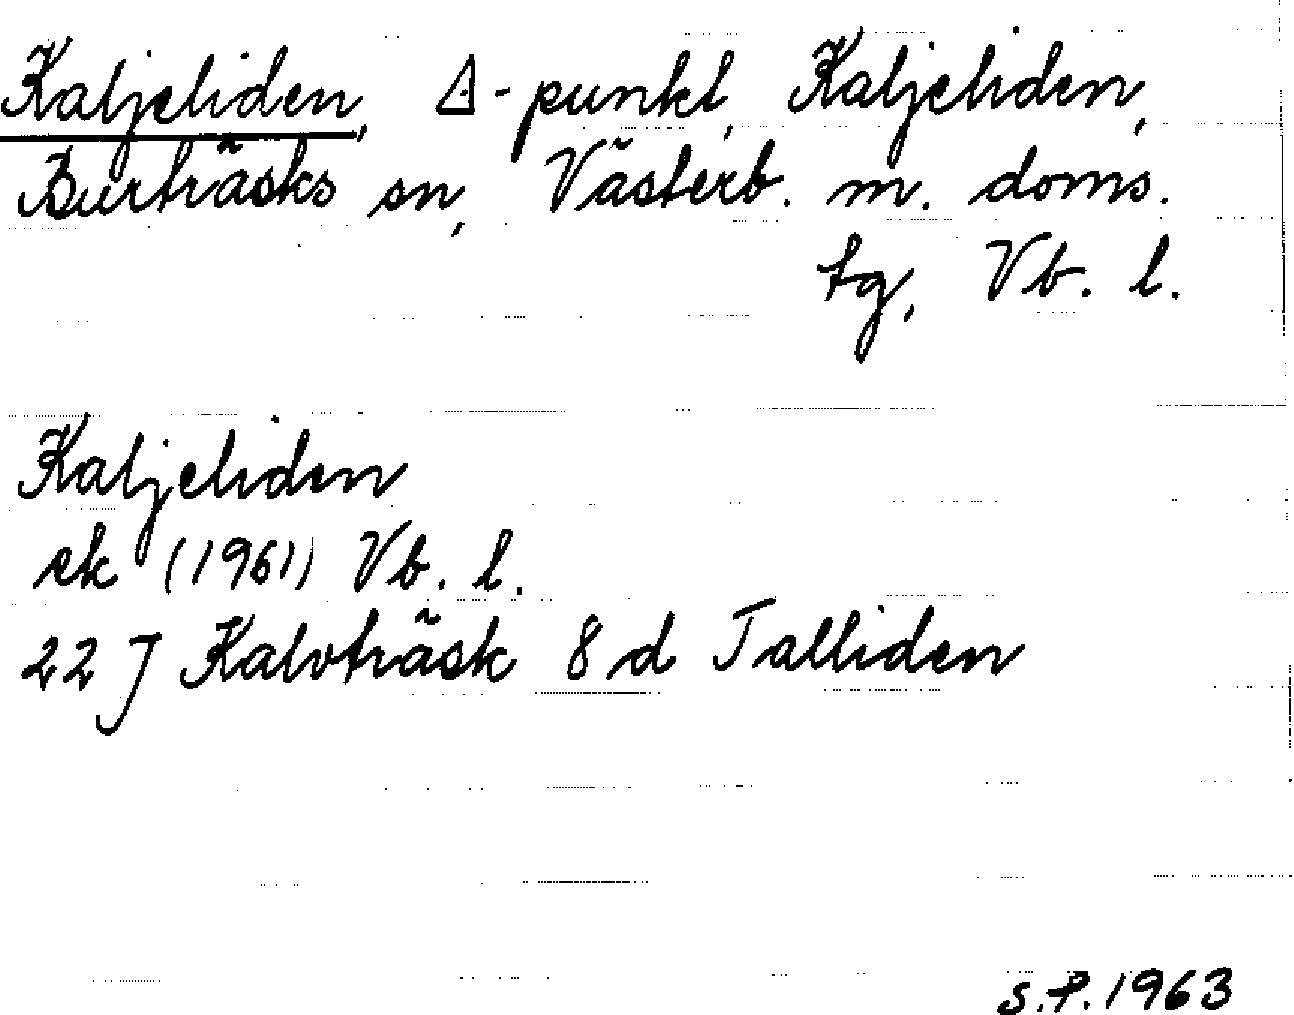 Kaljeliden, ∆-punkt, Kaljeliden,
Burträsks sn, Västerb. m. doms.
tg, Vb. l.
Kaljeliden
ek (1961) Vb. l.
22 J Kalvträsk 8 d Talliden
S.P. 1963